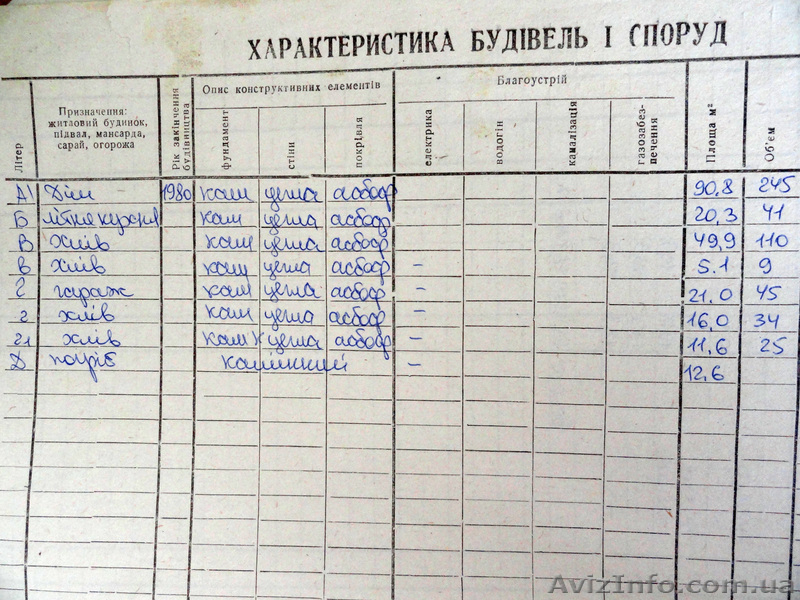 ХАРАКТЕРИСТИКА БУДІВЕЛЬ І СПОРУД
Літер
Призначення: житловий будинок, підвал, мансарда, сарай, огорожа
Рік закінчення будівництва
Опис конструктивних елементів
фундамент
стіни
покрівля
Благоустрій
електрика
водогін
каналізація
газозабезпечення
Площа м²
Об'єм
А1 Дім 1980 кам цегла асбоф 90.8 245
Б літня кухня кам цегла асбоф 20,3 41
В Хлів кам цегла асбоф 49,9 110
в Хлів кам цегла асбоф – 5.1 9
Г гараж кам цегла асбоф – 21.0 45
г хлів кам цегла асбоф – 16,0 34
г1 хлів кам цегла асбоф – 11,6 25
Д погріб камінний – 12,6
AvizInfo.com.ua